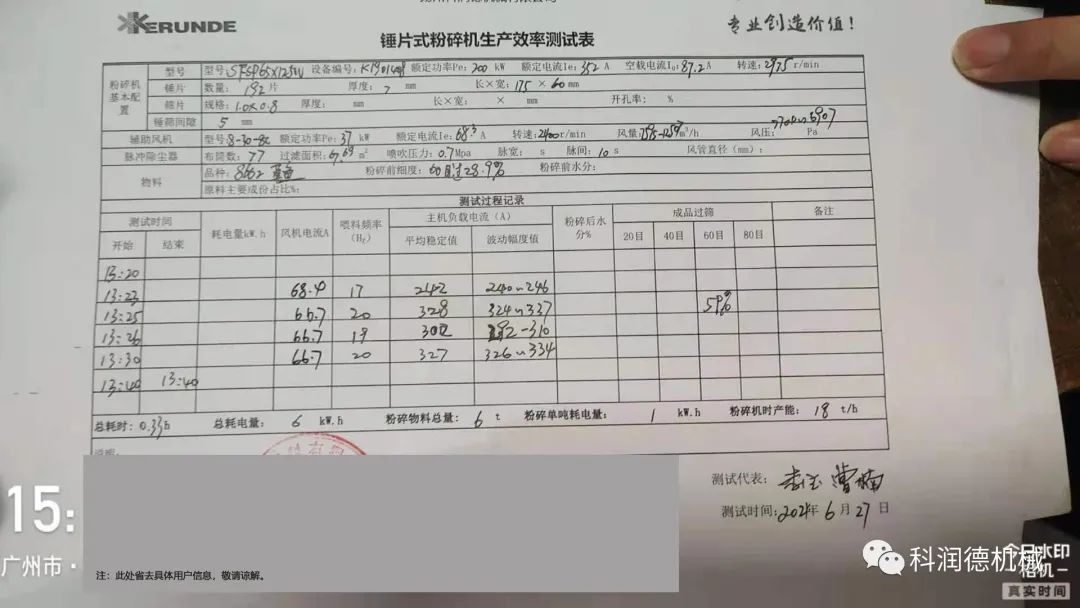 KERUNDE
专业创造价值!
锤片式粉碎机生产效率测试表
粉碎机基本配置 型号 型号: 设备编号: 额定功率Pe: 200 kW 额定电流Ie: 352 A 空载电流I₀: 87.2A 转速: 2975 r/min
锤片 数量: 192 片 厚度: 7 mm 长×宽: 175 × 60 mm
筛片 规格: 1.0×0.8 厚度: mm 长×宽: × mm 开孔率: %
锤筛间隙 5 mm
辅助风机 型号: 8-30-8C 额定功率Pe: 37 kW 额定电流Ie: 68.3 A 转速: 2900 r/min 风量: m³/h 风压: Pa
脉冲除尘器 布筒数: 77 过滤面积: m² 喷吹压力: 0.7 Mpa 脉宽: s 脉间: 10 s 风管直径(mm):
物料 品种: 8162 粉碎前细度: 60目过28.9% 粉碎前水分:
原料主要成份占比%:
测试过程记录
测试时间 耗电量kW.h 风机电流A 喂料频率(Hz) 主机负载电流(A) 粉碎后水分% 成品过筛 备注
开始 结束 平均稳定值 波动幅度值 20目 40目 60目 80目
13:20
13:23 68.4 17 242 240~246
13:25 66.7 20 328 324~337 59%
13:26 66.7 19 302 292-310
13:30 66.7 20 327 326~334
13:40 13:40
总耗时: 0.33h 总耗电量: 6 kW.h 粉碎物料总量: 6 t 粉碎单吨耗电量: 1 kW.h 粉碎机时产能: 18 t/h
测试代表:
测试时间: 2024年 6 月 27 日
15:
广州市·
注：此处省去具体用户信息，敬请谅解。
科润德机械
今日水印
相机
真实时间